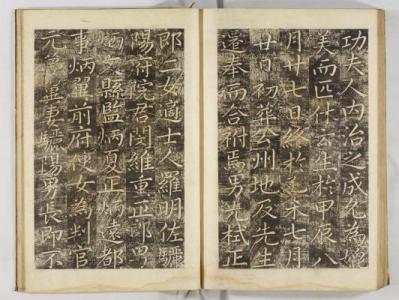 功夫人內治之成允爲嬪
美而匹休云生於甲辰八
月廿七日終於乙未七月
廿日初葬公州地及先生
遷奉而合祔焉男光栻正
郎二女適士人羅明佐驪
陽府院君閔維重正郎男
炳文縣監炳夏正炳遠都
事炳翼前府使女爲判官
元夢翼妻驪陽男長即不